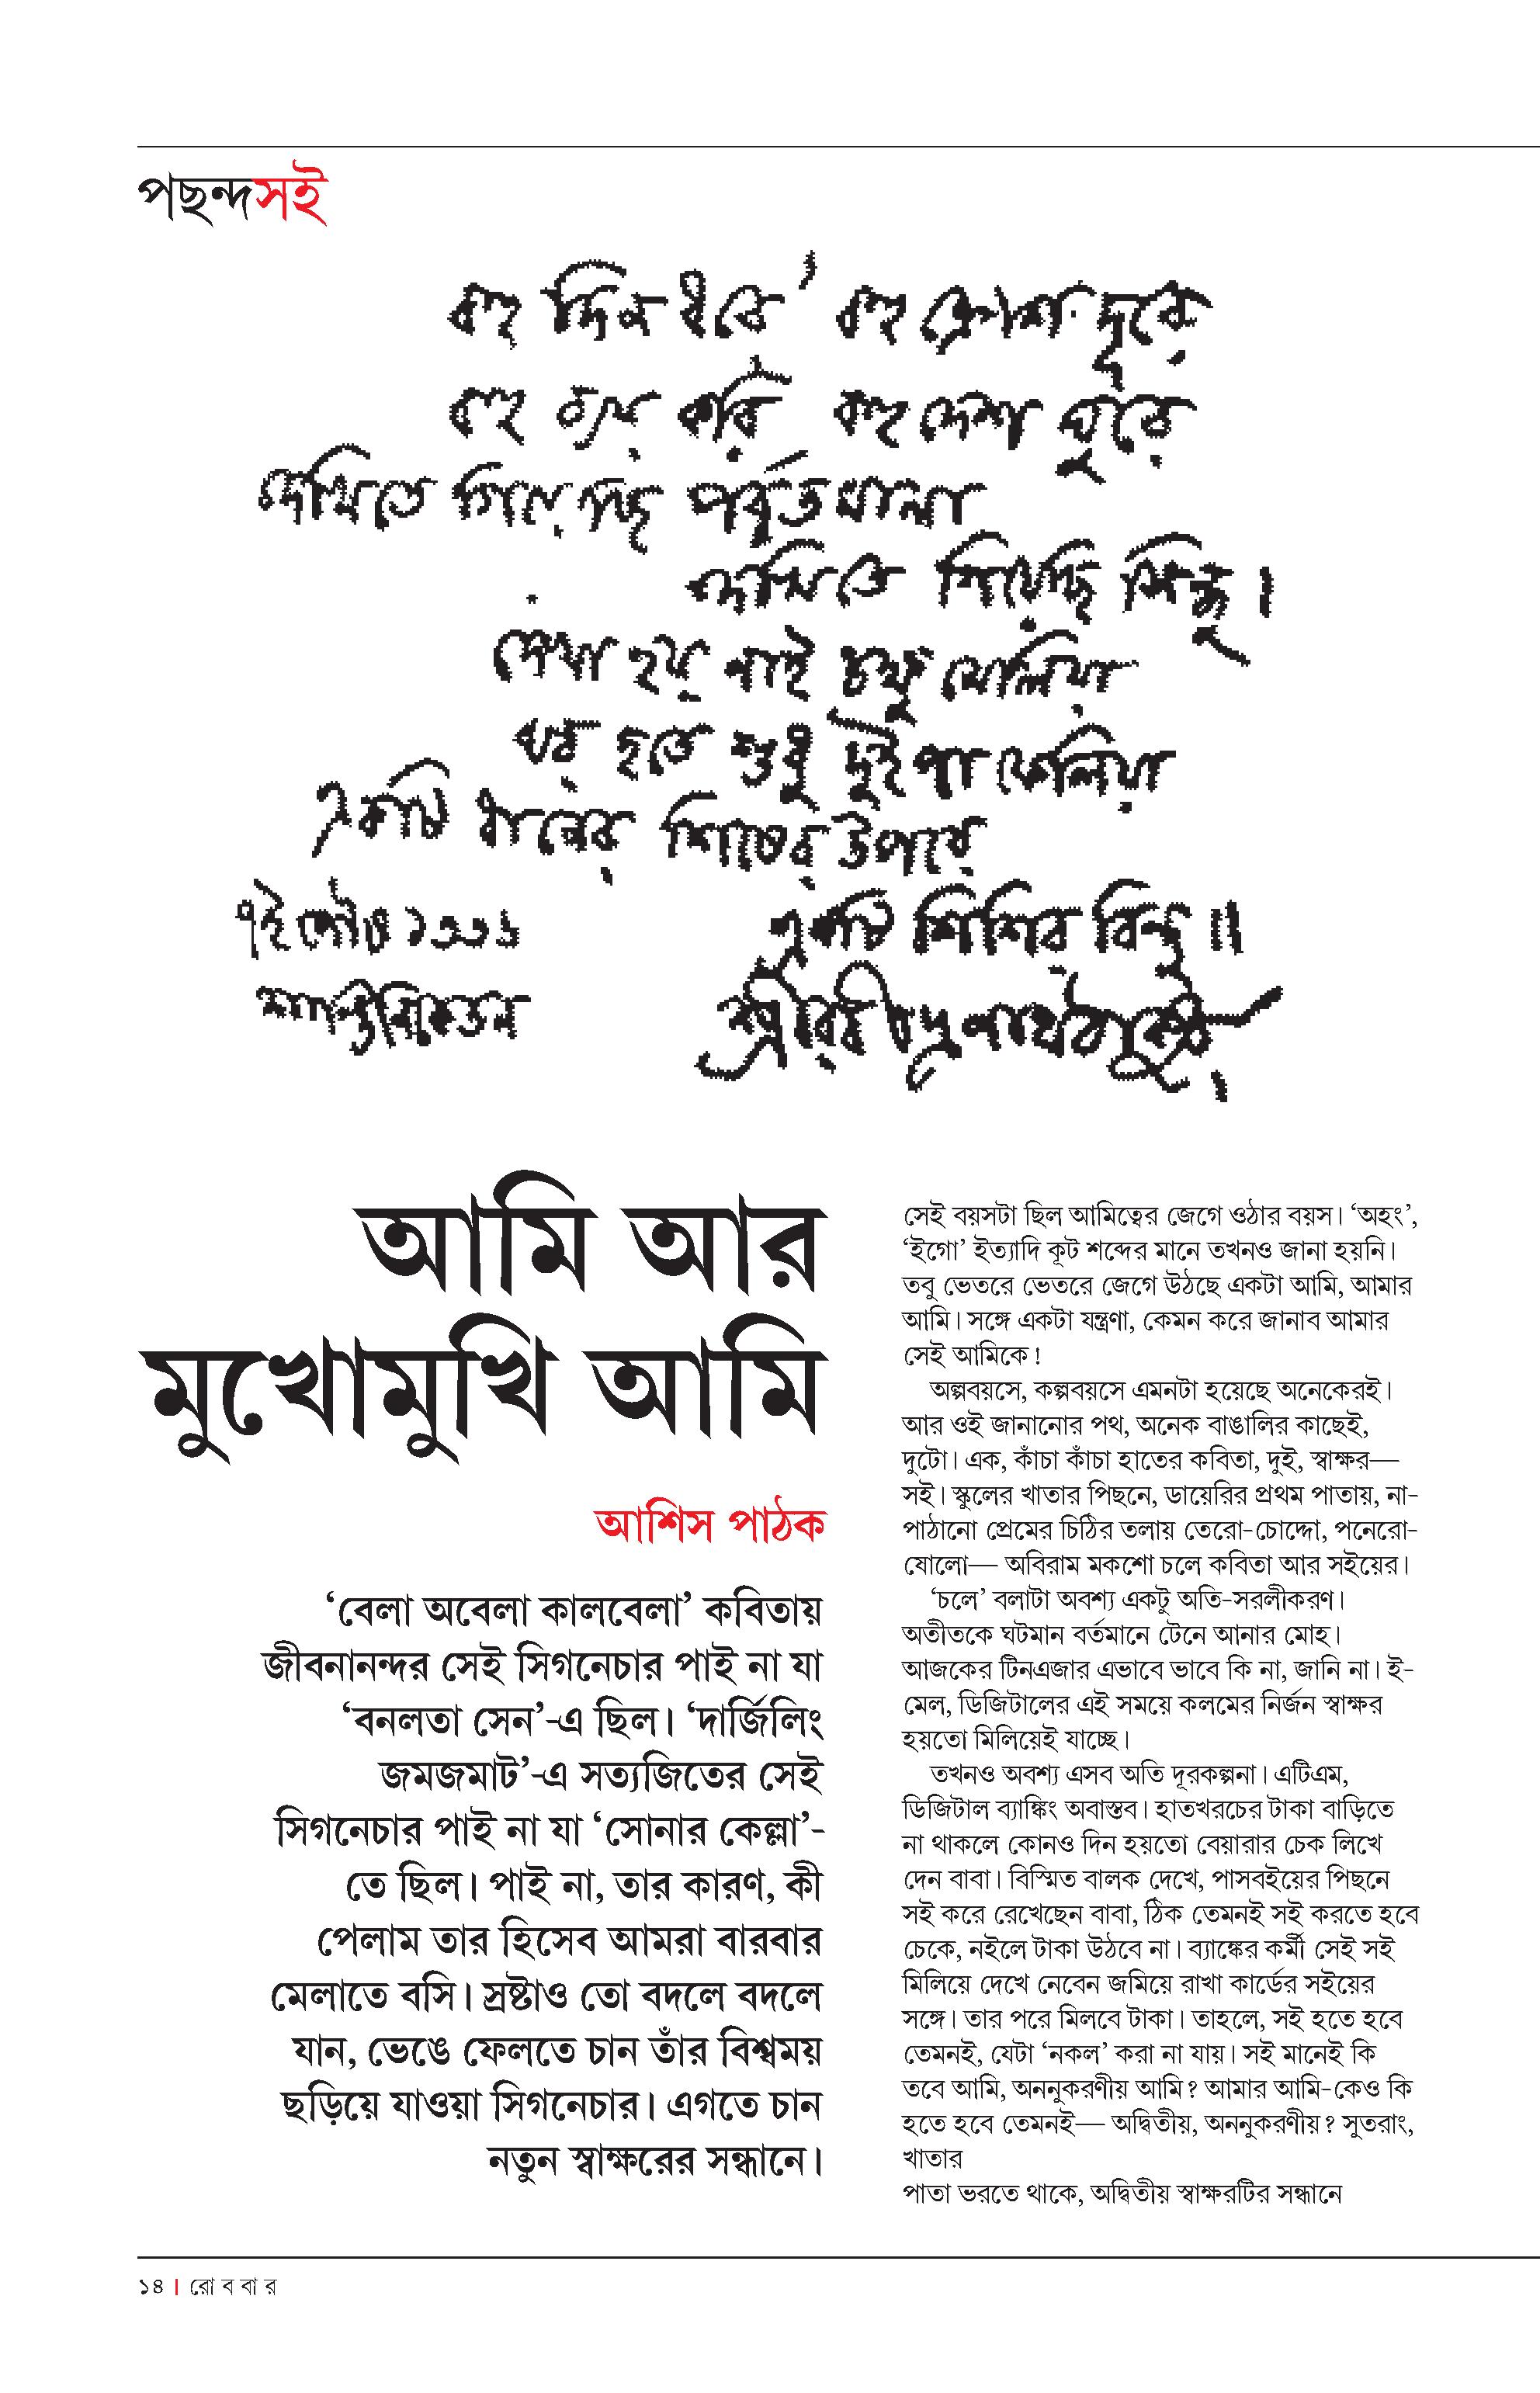 পছন্দসই
বহু দিন ধরে' বহু ক্রোশ দূরে
বহু ব্যয় করি বহু দেশ ঘুরে
দেখিতে গিয়েছি পর্বতমালা
দেখিতে গিয়েছি সিন্ধু।
দেখা হয় নাই চক্ষু মেলিয়া
ঘর হতে শুধু দুই পা ফেলিয়া
একটি ধানের শিষের উপরে
একটি শিশির বিন্দু॥
৭ই পৌষ ১৩৩৬
শান্তিনিকেতন
শ্রীরবীন্দ্রনাথ ঠাকুর
আমি আর
মুখোমুখি আমি
আশিস পাঠক
‘বেলা অবেলা কালবেলা’ কবিতায়
জীবনানন্দর সেই সিগনেচার পাই না যা
‘বনলতা সেন’-এ ছিল। ‘দার্জিলিং
জমজমাট’-এ সত্যজিতের সেই
সিগনেচার পাই না যা ‘সোনার কেল্লা’-
তে ছিল। পাই না, তার কারণ, কী
পেলাম তার হিসেব আমরা বারবার
মেলাতে বসি। স্রষ্টাও তো বদলে বদলে
যান, ভেঙে ফেলতে চান তাঁর বিশ্বময়
ছড়িয়ে যাওয়া সিগনেচার। এগতে চান
নতুন স্বাক্ষরের সন্ধানে।
সেই বয়সটা ছিল আমিত্বের জেগে ওঠার বয়স। ‘অহং’,
‘ইগো’ ইত্যাদি কূট শব্দের মানে তখনও জানা হয়নি।
তবু ভেতরে ভেতরে জেগে উঠছে একটা আমি, আমার
আমি। সঙ্গে একটা যন্ত্রণা, কেমন করে জানাব আমার
সেই আমিকে!
অল্পবয়সে, কল্পবয়সে এমনটা হয়েছে অনেকেরই।
আর ওই জানানোর পথ, অনেক বাঙালির কাছেই,
দুটো। এক, কাঁচা কাঁচা হাতের কবিতা, দুই, স্বাক্ষর—
সই। স্কুলের খাতার পিছনে, ডায়েরির প্রথম পাতায়, না-
পাঠানো প্রেমের চিঠির তলায় তেরো-চোদ্দো, পনেরো-
ষোলো— অবিরাম মকশো চলে কবিতা আর সইয়ের।
‘চলে’ বলাটা অবশ্য একটু অতি-সরলীকরণ।
অতীতকে ঘটমান বর্তমানে টেনে আনার মোহ।
আজকের টিনএজার এভাবে ভাবে কি না, জানি না। ই-
মেল, ডিজিটালের এই সময়ে কলমের নির্জন স্বাক্ষর
হয়তো মিলিয়েই যাচ্ছে।
তখনও অবশ্য এসব অতি দূরকল্পনা। এটিএম,
ডিজিটাল ব্যাঙ্কিং অবাস্তব। হাতখরচের টাকা বাড়িতে
না থাকলে কোনও দিন হয়তো বেয়ারার চেক লিখে
দেন বাবা। বিস্মিত বালক দেখে, পাসবইয়ের পিছনে
সই করে রেখেছেন বাবা, ঠিক তেমনই সই করতে হবে
চেকে, নইলে টাকা উঠবে না। ব্যাঙ্কের কর্মী সেই সই
মিলিয়ে দেখে নেবেন জমিয়ে রাখা কার্ডের সইয়ের
সঙ্গে। তার পরে মিলবে টাকা। তাহলে, সই হতে হবে
তেমনই, যেটা ‘নকল’ করা না যায়। সই মানেই কি
তবে আমি, অননুকরণীয় আমি? আমার আমি-কেও কি
হতে হবে তেমনই— অদ্বিতীয়, অননুকরণীয়? সুতরাং,
খাতার
পাতা ভরতে থাকে, অদ্বিতীয় স্বাক্ষরটির সন্ধানে
১৪ | রোববার